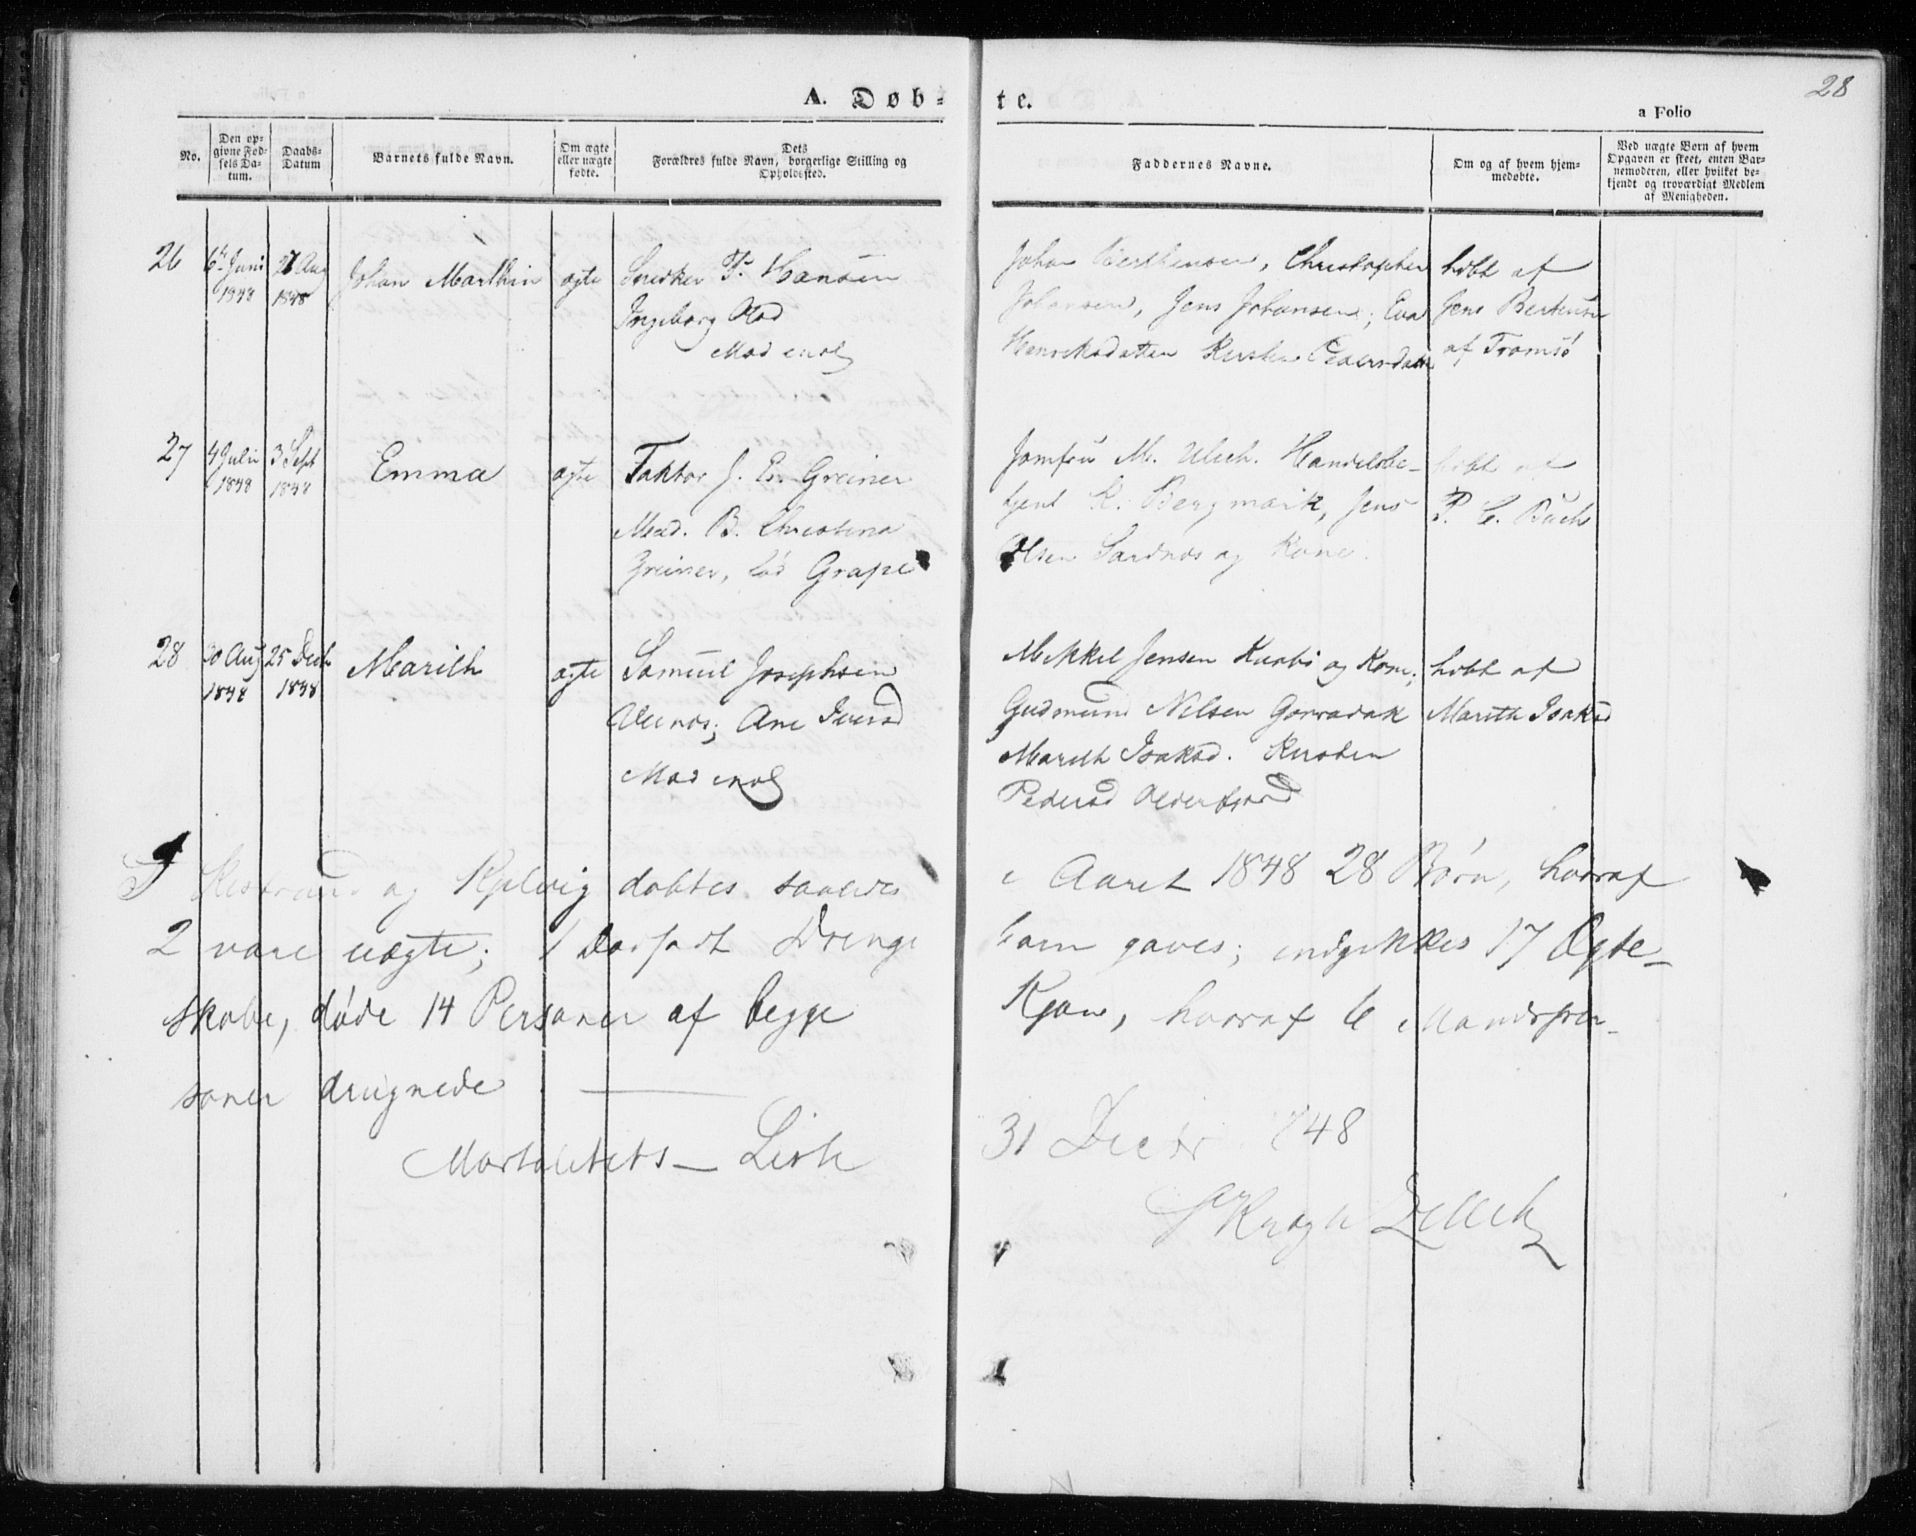 28
A. Døb-
te.
a Folio
No.
Den op-
givne Fød-
sels Da-
tum.
Daabs-
Datum
Barnets fulde Navn.
Om ægte
eller uægte
fødte.
Dets
Forældres fulde Navn, borgerlige Stilling og
Opholdssted.
Faddernes Navne.
Om og af hvem hjem-
medøbte.
Ved uægte Børn af hvem
Opgaven er skeet, enten Bar-
nemoderen, eller hvilket be-
kjendt og troværdigt Medlem
af Menigheden.
26
6te Juni
1848
27 Aug
1848
Johan Marthin
ægte
Snedker F. Hansen
Ingeborg Olsd
Madenol
Johan Berthensen, Christopher
Johansen, Jens Johansen; Eva
Henriksdatter Kirsten Pedersdatter
hdbt af
Jens Bertensen
af Tromsø
27
4 Julii
1848
3 Sept
1848
Emma
ægte
Faktor J. Er. Greiner
Mad. B. Christina
Greiner, fød Grape
Jomfru M. Ulich. Handelsbe-
tjent K. Bergmark, Jens
Olsen Sardnæs og Kone.
hdbt af
P. C. Buch
28
20 Aug
1848
25 Decb
1848
Marith
ægte
Samuel Josephsen
Ane Iversd
Mikkel Jensen og Kone;
Gudmund Nilsen
Marith Isaksd. Kirsten
Pedersd Olderfjord
hdbt af
Marith Isaksd
I Kistrand og Kjelvig døbtes saaledes
i Aaret 1848 28 Børn, hvoraf
2 vare uægte; 1 dødfødt Drenge
barn gaves; indgikkes 17 Ægte-
skabe, døde 14 Personer af begge
Kjøn, hvoraf 6 Mandsper-
soner druknede
Mortalitets - Liste
31 Decbr 1848
Krogh Zelleck